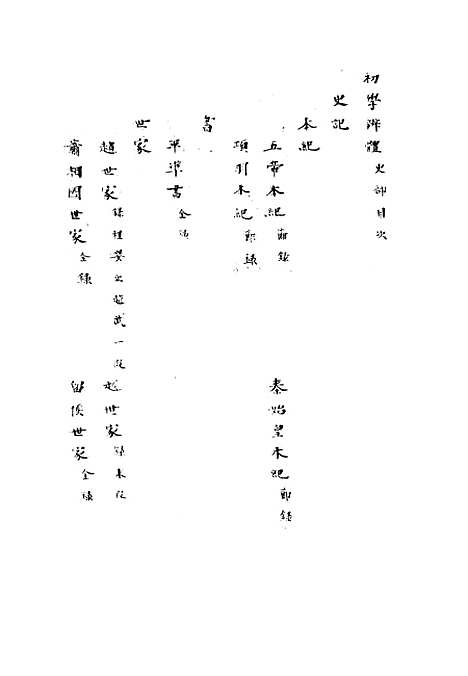 初學辨體史部目次
史記
本紀
五帝本紀節錄
秦始皇本紀節錄
項羽本紀節錄
書
平準書全錄
世家
趙世家錄程嬰立趙武一段
世家錄末段
蕭相國世家全錄
留侯世家全錄